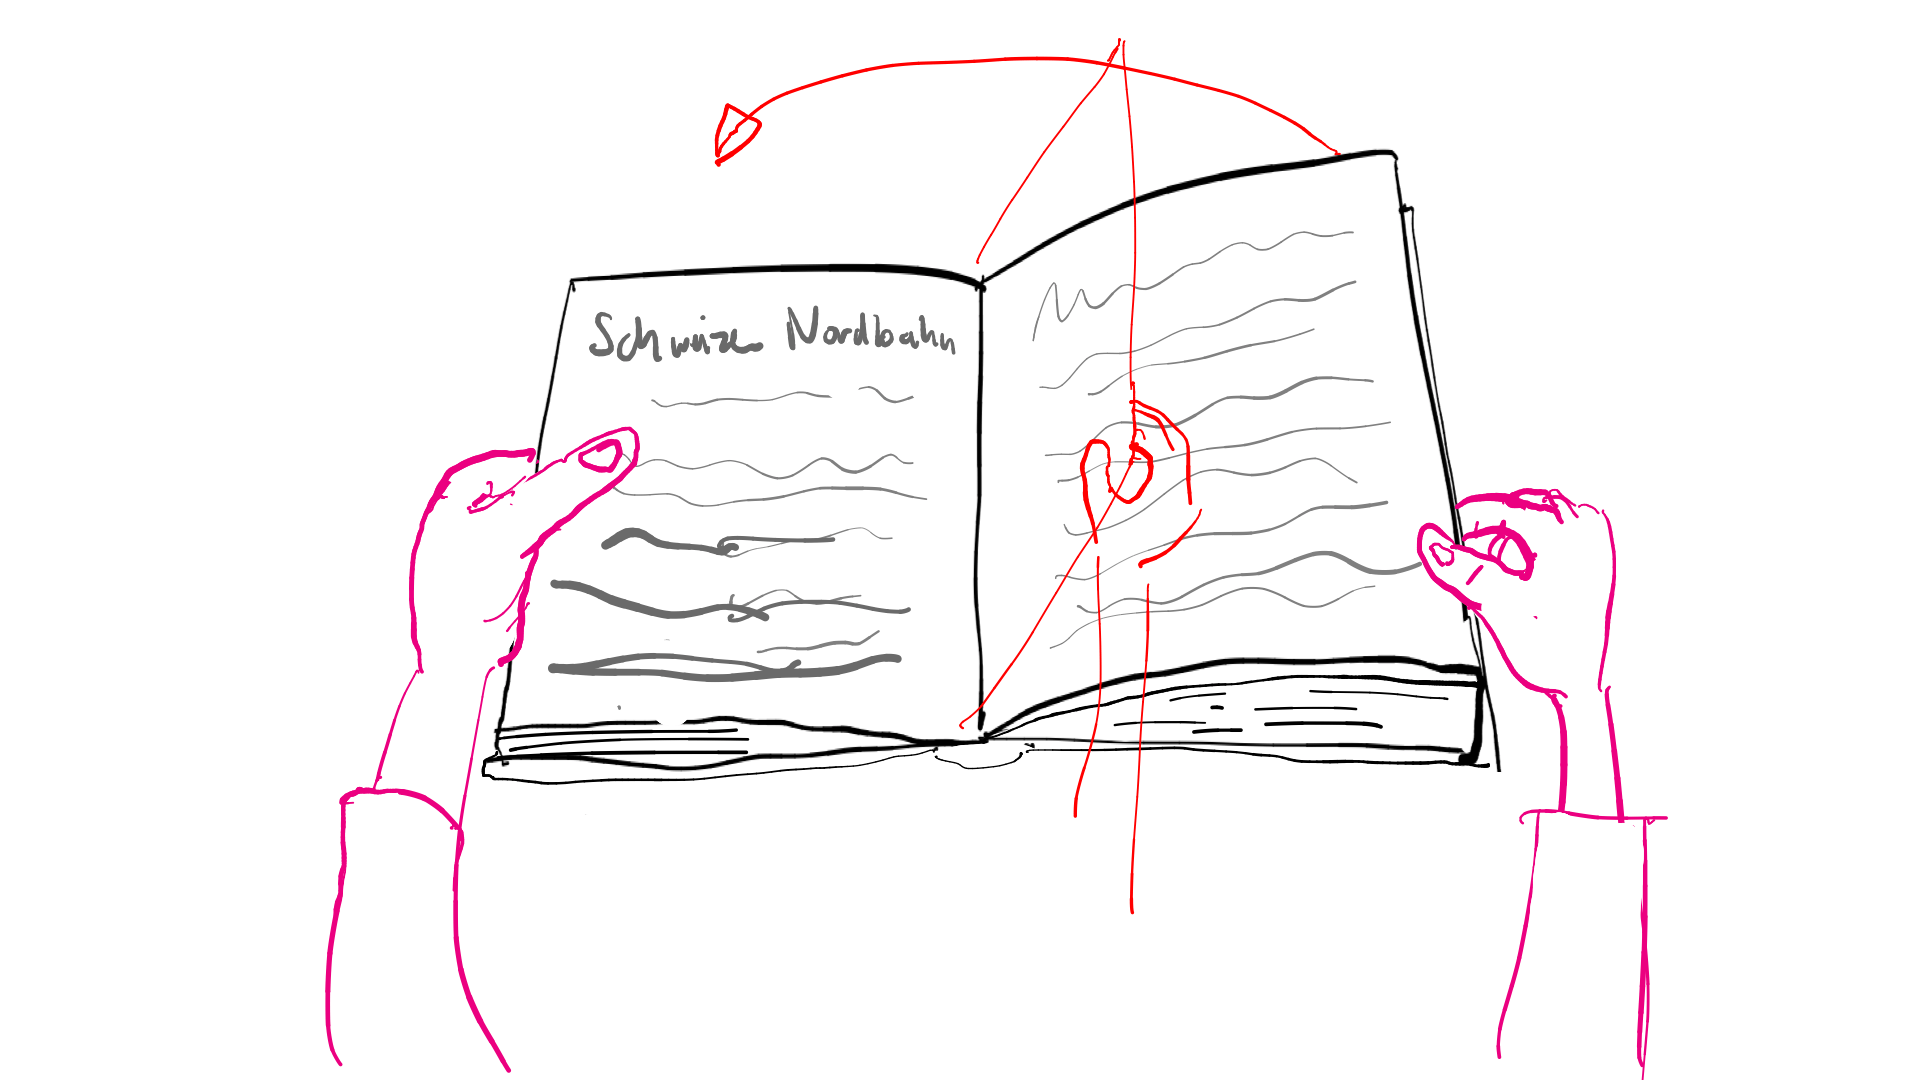 Schweize Nordbahn